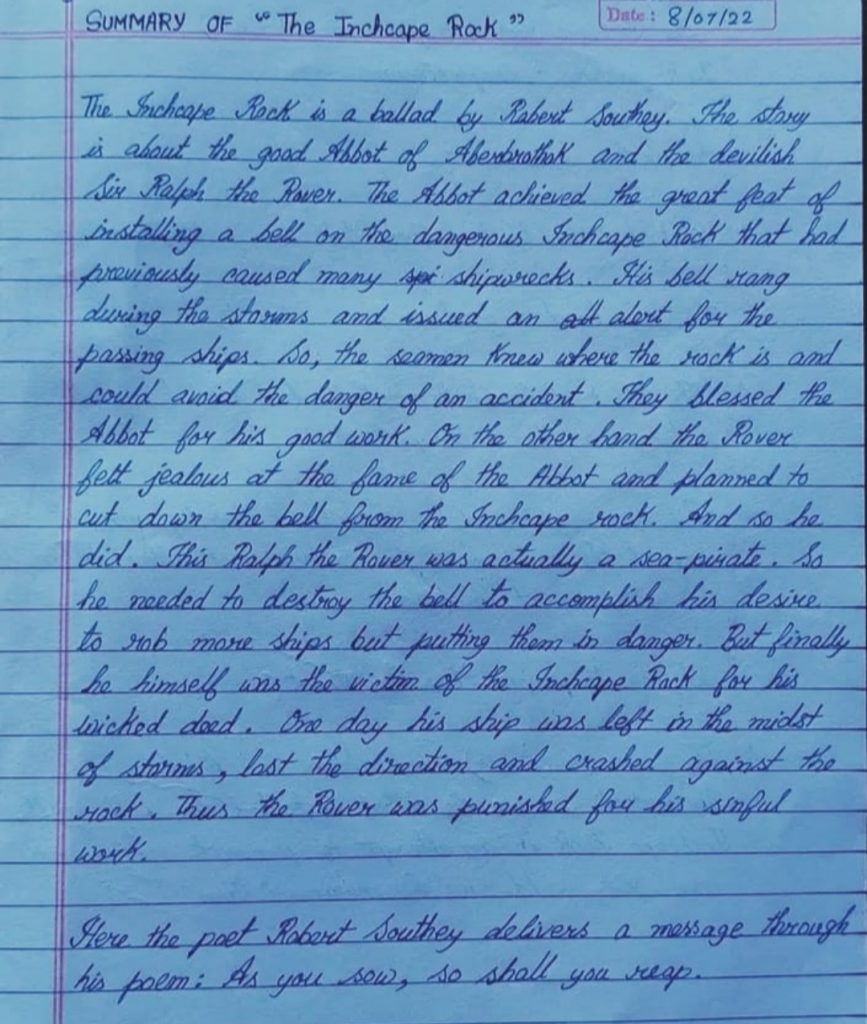 SUMMARY OF "The Inchcape Rock"
Date: 8/07/22
The Inchcape Rock is a ballad by Robert Southey. The story
is about the good Abbot of Aberbrothok and the devilish
Sir Ralph the Rover. The Abbot achieved the great feat of
installing a bell on the dangerous Inchcape Rock that had
previously caused many spi shipwrecks. His bell rang
during the storms and issued an alt alert for the
passing ships. So, the seamen knew where the rock is and
could avoid the danger of an accident. They blessed the
Abbot for his good work. On the other hand the Rover
felt jealous at the fame of the Abbot and planned to
cut down the bell from the Inchcape rock. And so he
did. This Ralph the Rover was actually a sea-pirate. So
he needed to destroy the bell to accomplish his desire
to rob more ships but putting them in danger. But finally
he himself was the victim of the Inchcape Rock for his
wicked deed. One day his ship was left in the midst
of storms, lost the direction and crashed against the
rock. Thus the Rover was punished for his sinful
work.
Here the poet Robert Southey delivers a message through
his poem: As you sow, so shall you reap.